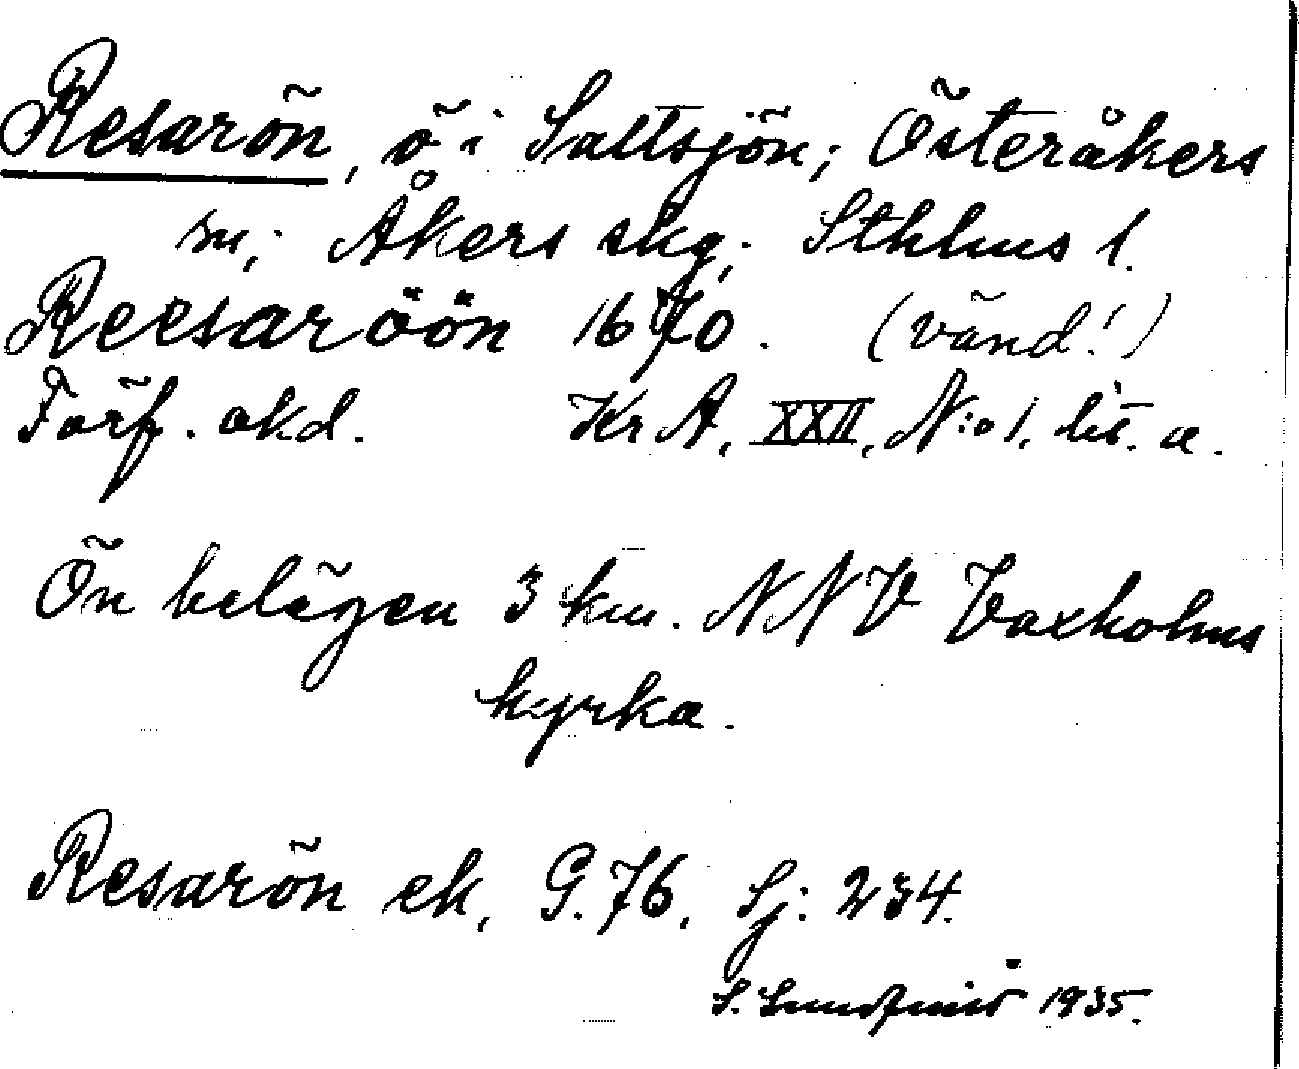 Resarön, ö i Saltsjön; Österåkers
sn; Åkers skg; Sthlms l.
Reesaröön 1670. (vänd!)
Förf. okd. Kr A, XXII, N:o 1. lit. a.
Ön belägen 3 km. NNV Vaxholms
kyrka.
Resarön ek, G. 76, Sj: 234.
S. 1935.